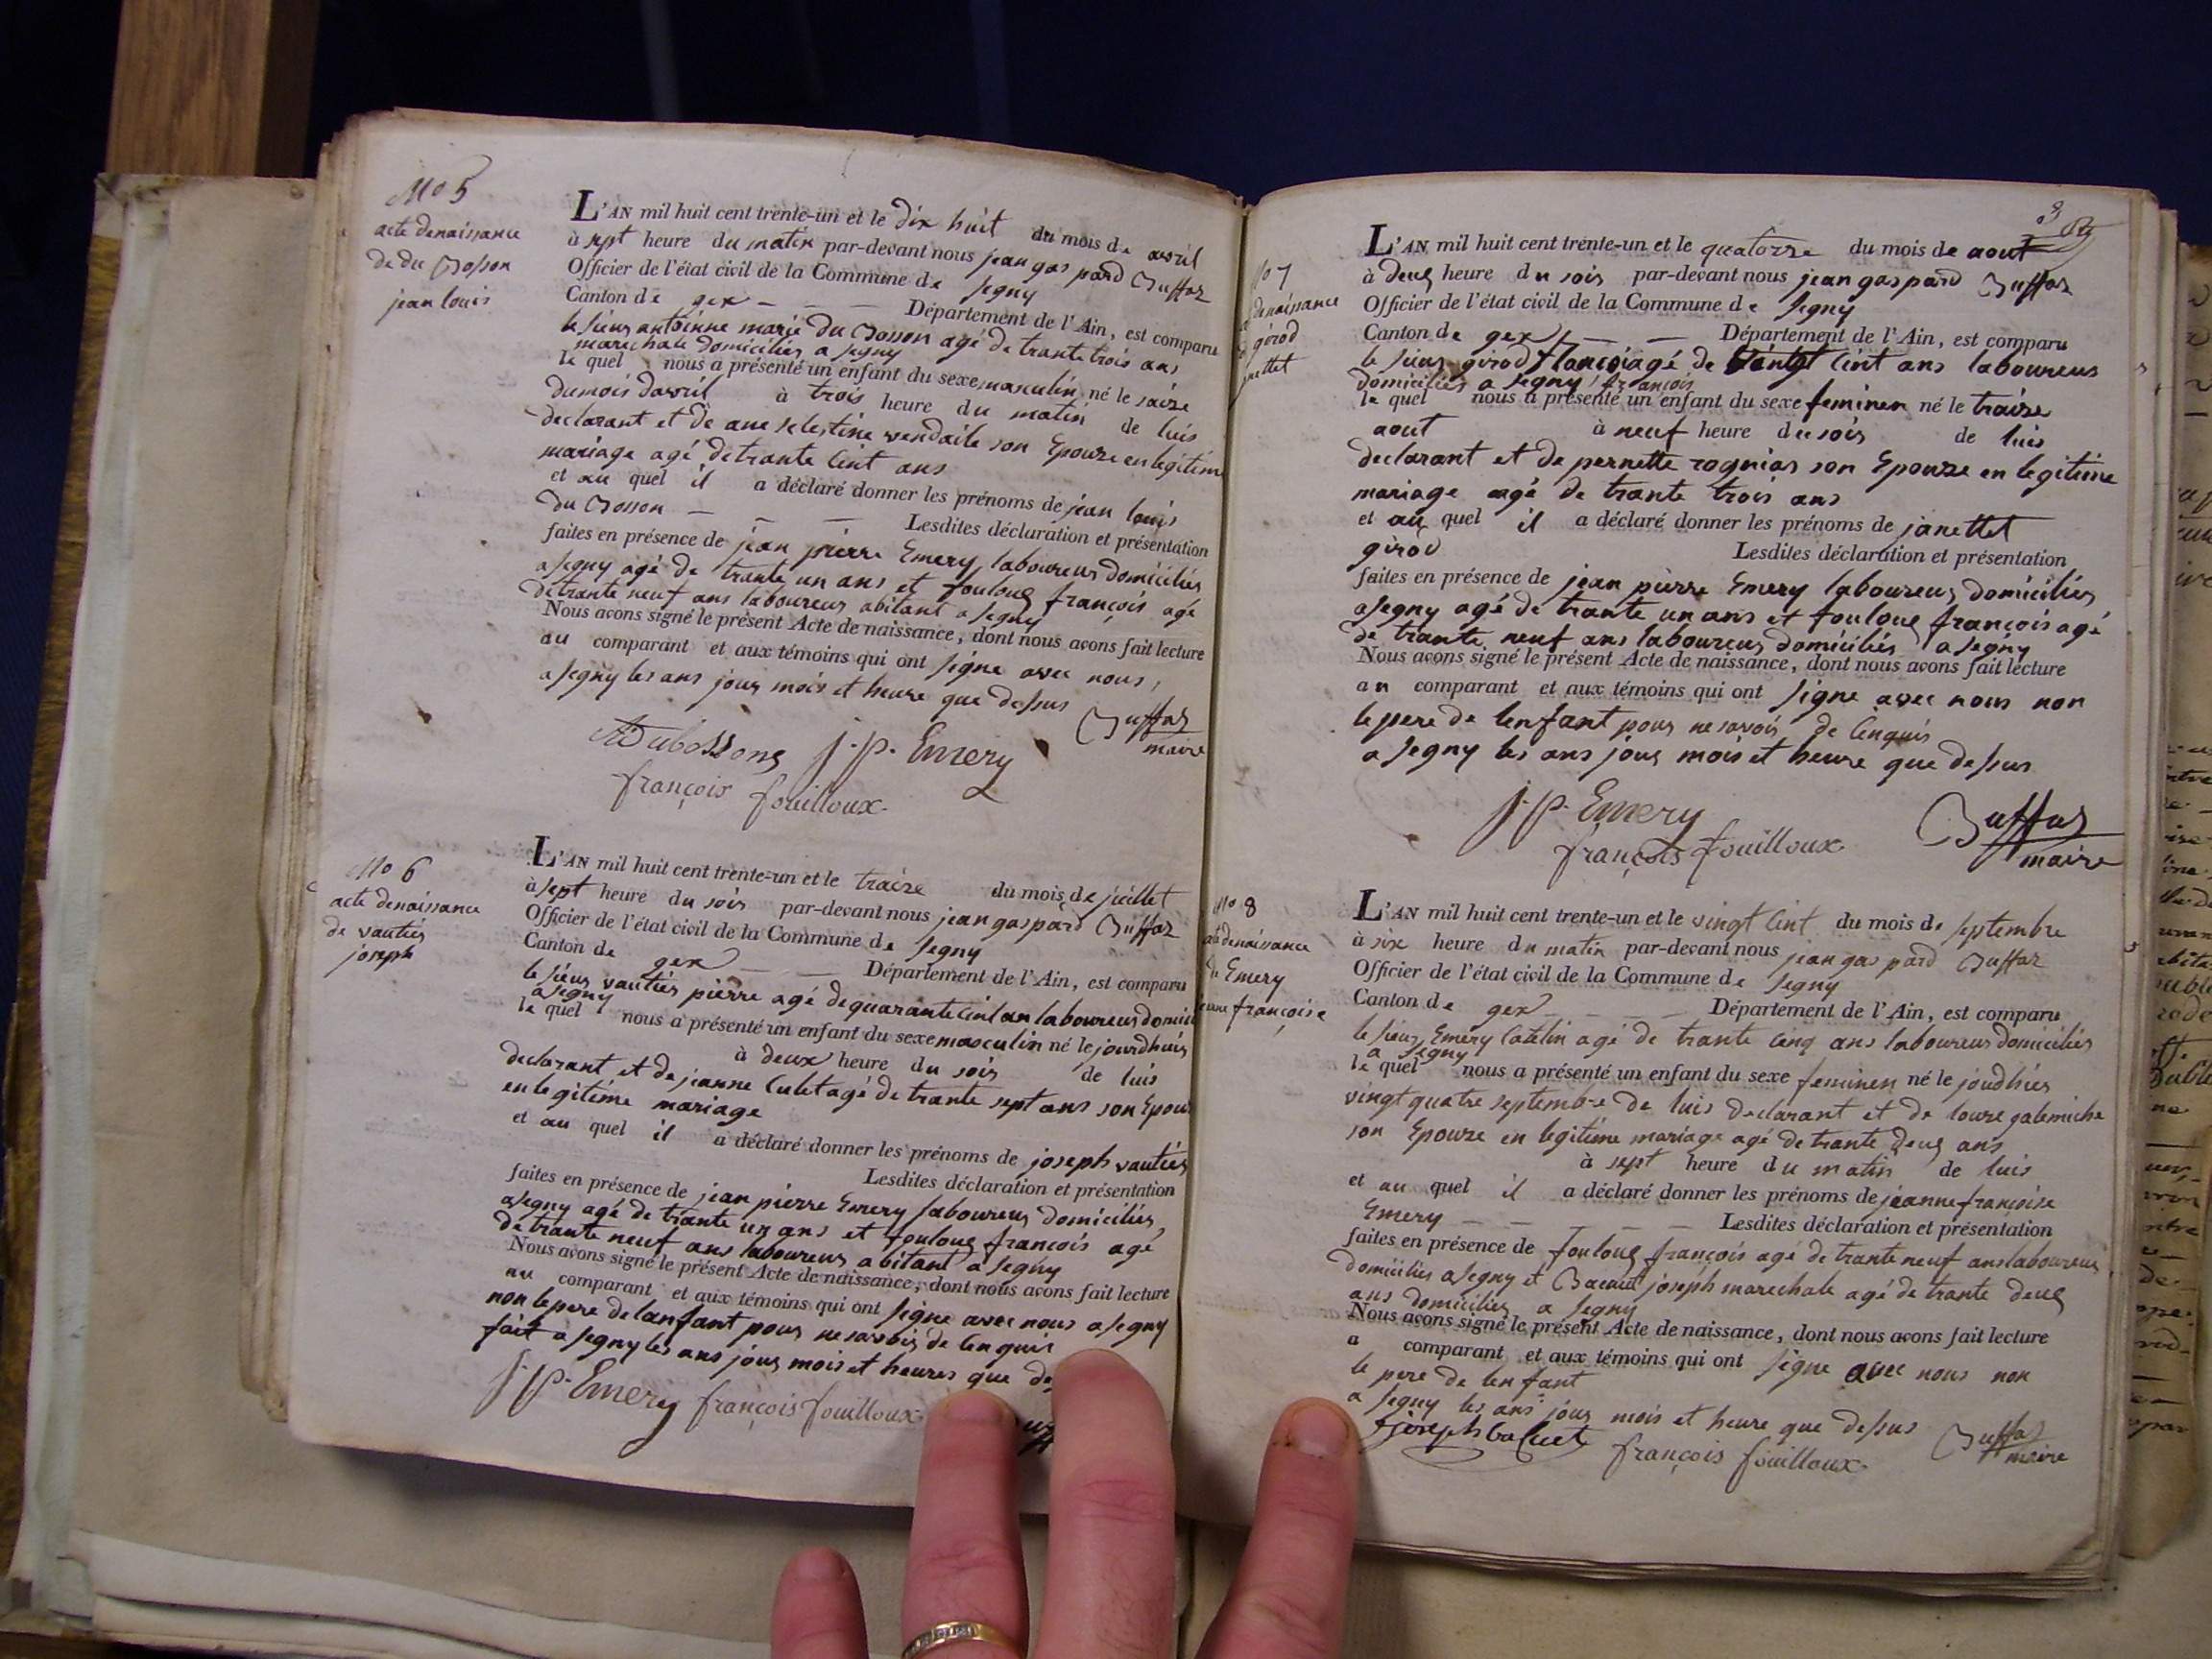 No 5
acte denaissance
de du Bosson
jean louis
L'AN mil huit cent trente-un et le dix huit du mois de avril
à sept heure du matin par-devant nous jean gas pard Buffaz
Officier de l'état civil de la Commune de segny
Canton de gex Département de l'Ain, est comparu
le sieur antoinne marie du Bosson agé de trante trois ans
marechale domiciliés a segny
le quel nous a présenté un enfant du sexe masculin né le saize
dumois davril à trois heure du matin de luis
declarant et de ane selestine vendaile son Epouze en legitime
mariage agé de trante Cint ans
et au quel il a déclaré donner les prénoms de jean louis
du Bosson Lesdites déclaration et présentation
faites en présence de jean pierre Emery laboureus domiciliés
a segny agé de trante un ans et fouloug françois agé
de trante neuf ans laboureus abitant a segny
Nous avons signé le présent Acte de naissance, dont nous avons fait lecture
au comparant et aux témoins qui ont signe avec nous,
a segny les ans jous mois et heure que dessus
Buffaz
maire
ADubossons j.p. Emery
françois fouilloux
No 6
acte denaissance
de vauties
joseph
L'AN mil huit cent trente-un et le traize du mois de juillet
à sept heure du sois par-devant nous jean gaspard Buffaz
Officier de l'état civil de la Commune de segny
Canton de gex Département de l'Ain, est comparu
le sieus vautiés pierre agé de quarante Cint an laboureus domici
a segny
le quel nous a présenté un enfant du sexe masculin né le jourdhuis
à deux heure du sois de luis
declarant et de jeanne Cultet agé de trante sept ans son Epous
en legitime mariage
et au quel il a déclaré donner les prénoms de joseph vautiés
Lesdites déclaration et présentation
faites en présence de jean pierre Emery laboureus domiciliés
a segny agé de trante un ans et fouloug françois agé
de trante neuf ans laboureus abitant a segny
Nous avons signé le présent Acte de naissance, dont nous avons fait lecture
au comparant et aux témoins qui ont signe avec nous a segny
non le pere de lanfant pous ne savois de Cenquis
fait a segny les ans jous mois et heures que de
j.p. Emery françois fouilloux
No 7
denaissance
girod
L'AN mil huit cent trente-un et le quatorze du mois de aout
à deug heure du sois par-devant nous jean gaspard Buffaz
Officier de l'état civil de la Commune de segny
Canton de gex Département de l'Ain, est comparu
le sieus girod agé de vingt Cint ans laboureus
domiciliés a segny françois
le quel nous a présenté un enfant du sexe feminen né le traize
aout à neuf heure du sois de luis
declarant et de pernette rognias son Epouze en legitime
mariage agé de trante trois ans
et au quel il a déclaré donner les prénoms de janettet
girod Lesdites déclaration et présentation
faites en présence de jean pierre Emery laboureus domiciliés
a segny agé de trante un ans et fouloug françois agé
de trante neuf ans laboureus domiciliés a segny
Nous avons signé le présent Acte de naissance, dont nous avons fait lecture
au comparant et aux témoins qui ont signe avec nous non
le pere de lenfant pous ne savois de Cenquis
a segny les ans jous mois et heure que dessus
j.p. Emery Buffaz
françois fouilloux maire
No 8
denaissance
de Emery
jeanne françoise
L'AN mil huit cent trente-un et le vingt Cint du mois de septembre
à six heure du matin par-devant nous jean gas pard Buffaz
Officier de l'état civil de la Commune de segny
Canton de gex Département de l'Ain, est comparu
le sieus Emery Catelin agé de trante Cinq ans laboureus domiciliés
a segny
le quel nous a présenté un enfant du sexe feminen né le joudhies
vingt quatre septembre de luis declarant et de louze galemiche
son Epouze en legitime mariage agé de trante deug ans
à sept heure du matin de luis
et au quel il a déclaré donner les prénoms de jeanne francoise
Emery Lesdites déclaration et présentation
faites en présence de fouloug françois agé de trante neuf ans laboureus
domiciliés a segny et joseph marechale agé de trante deug
ans domiciliés a segny
Nous avons signé le présent Acte de naissance, dont nous avons fait lecture
a comparant et aux témoins qui ont signe avec nous non
le pere de lenfant
a segny les ans jous mois et heure que dessus
françois fouilloux Buffaz
maire